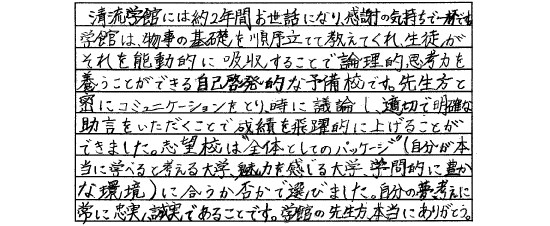 清流学館には約2年間お世話になり、感謝の気持ちで一杯です。
学館は、物事の基礎を順序立てて教えてくれ、生徒が
それを能動的に吸収することで論理的思考力を
養うことができる自己啓発的な予備校です。先生方と
密にコミュニケーションをとり、時に議論し、適切で明確な
助言をいただくことで成績を飛躍的に上げることが
できました。志望校は“全体としてのパッケージ”(自分が本
当に学べると考える大学、魅力を感じる大学、学問的に豊か
な環境)に合うか否かで選びました。自分の夢、考えに
常に忠実、誠実であることです。学館の先生方、本当にありがとう。